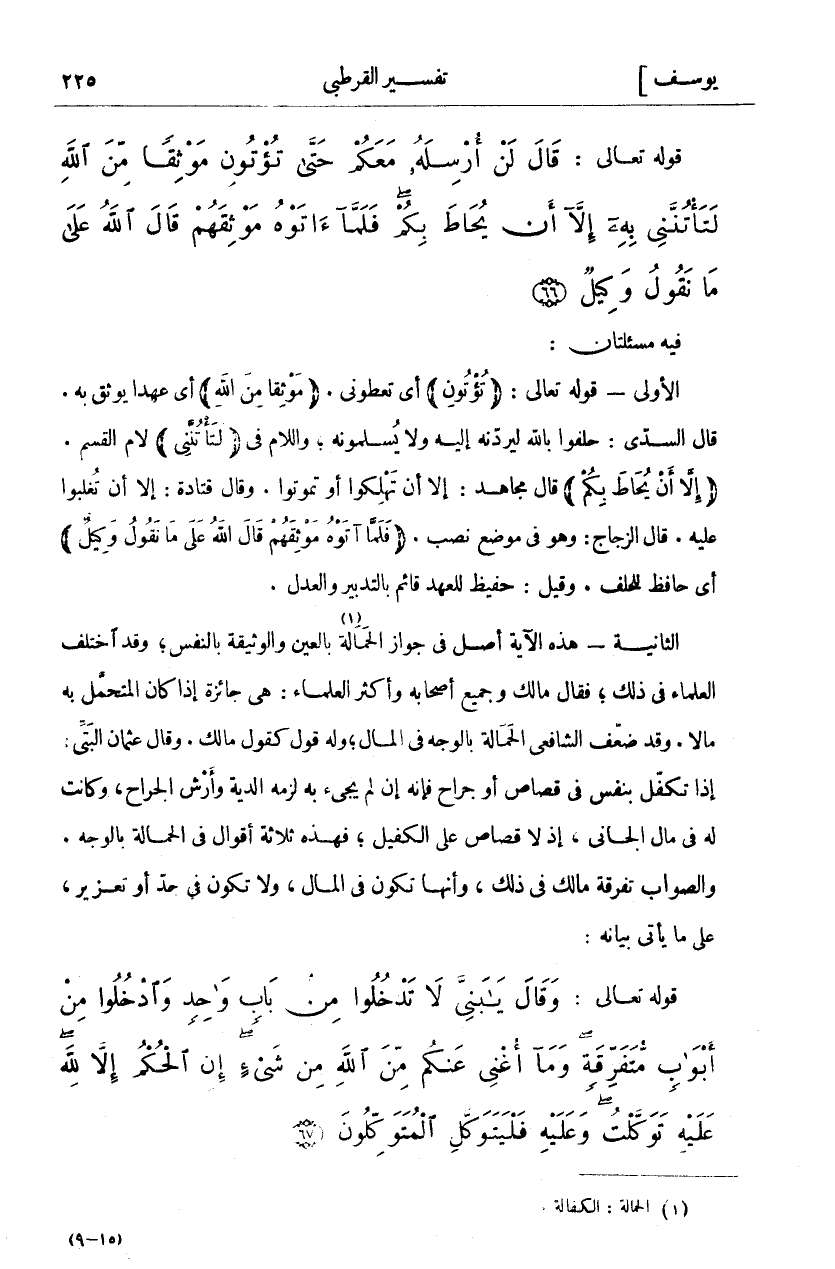 يوسف ] تفسير القرطبى ٢٢٥
قوله تعالى : قَالَ لَنْ أُرْسِلَهُۥ مَعَكُمْ حَتَّىٰ تُؤْتُونِ مَوْثِقًا مِّنَ ٱللَّهِ
لَتَأْتُنَّنِى بِهِۦٓ إِلَّآ أَن يُحَاطَ بِكُمْ ۖ فَلَمَّآ ءَاتَوْهُ مَوْثِقَهُمْ قَالَ ٱللَّهُ عَلَىٰ
مَا نَقُولُ وَكِيلٌ ٦٦
فيه مسئلتان :
الأولى — قوله تعالى : ﴿تُؤْتُونِ﴾ أى تعطونى . ﴿مَوْثِقًا مِنَ اللَّهِ﴾ أى عهدا يوثق به .
قال السدّى : حلفوا بالله ليردّنه إليه ولا يُسلمونه ؛ واللام فى ﴿لَتَأْتُنَّنِى﴾ لام القسم .
﴿إِلَّا أَنْ يُحَاطَ بِكُمْ﴾ قال مجاهد : إلا أن تَهْلِكوا أو تموتوا . وقال قتادة : إلا أن تُغلبوا
عليه . قال الزجاج: وهو فى موضع نصب . ﴿فَلَمَّا آتَوْهُ مَوْثِقَهُمْ قَالَ اللَّهُ عَلَى مَا نَقُولُ وَكِيلٌ﴾
أى حافظ للحلف . وقيل : حفيظ للعهد قائم بالتدبير والعدل .
الثانية — هذه الآية أصل فى جواز الحَمَالة(١) بالعين والوثيقة بالنفس؛ وقد ٱختلف
العلماء فى ذلك ؛ فقال مالك وجميع أصحابه وأكثر العلماء : هى جائزة إذا كان المتحمَّل به
مالا . وقد ضعّف الشافعى الحَمَالة بالوجه فى المال؛ وله قول كقول مالك . وقال عثمان البَتِّى:
إذا تكفّل بنفس فى قصاص أو جراح فإنه إن لم يجىء به لزمه الدية وأَرْش الجراح، وكانت
له فى مال الجانى ، إذ لا قصاص على الكفيل ؛ فهذه ثلاثة أقوال فى الحمالة بالوجه .
والصواب تفرقة مالك فى ذلك ، وأنها تكون فى المال ، ولا تكون في حدّ أو تعزير ،
على ما يأتى بيانه :
قوله تعالى : وَقَالَ يَٰبَنِىَّ لَا تَدْخُلُوا مِنۢ بَابٍ وَٰحِدٍ وَٱدْخُلُوا مِنْ
أَبْوَٰبٍ مُّتَفَرِّقَةٍ ۖ وَمَآ أُغْنِى عَنكُم مِّنَ ٱللَّهِ مِن شَىْءٍ ۖ إِنِ ٱلْحُكْمُ إِلَّا لِلَّهِ ۖ
عَلَيْهِ تَوَكَّلْتُ ۖ وَعَلَيْهِ فَلْيَتَوَكَّلِ ٱلْمُتَوَكِّلُونَ ٦٧
(١) الحمالة : الكفالة .
(١٥–٩)